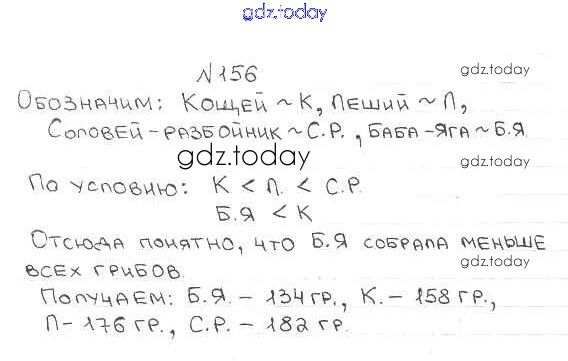 gdz.today
№156
gdz.today
Обозначим: Кощей ~ К, Леший ~ Л,
Соловей-разбойник ~ С.Р., Баба-Яга ~ Б.Я
gdz.today
gdz.today
По условию: К < Л. < С.Р.
Б.Я < К
Отсюда понятно, что Б.Я собрала меньше
всех грибов.
gdz.today
Получаем: Б.Я. - 134 гр., К. - 158 гр.,
Л - 176 гр., С.Р. - 182 гр.
gdz.today